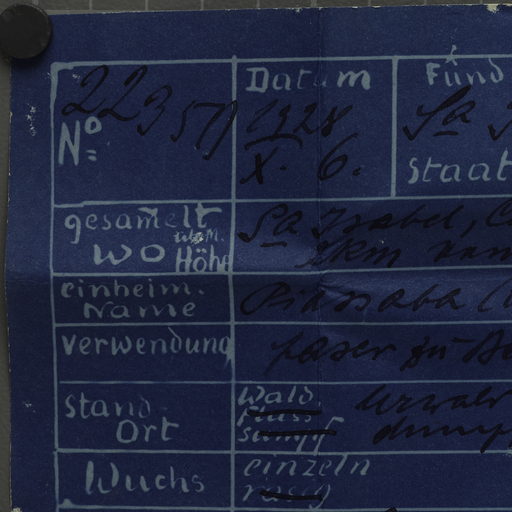 22357
Nº
Datum
1928
X. 6.
Fund
Sa
Staat
gesam̃elt
wo
üb. M.
Höhe
Sa Isabel
2km
einheim.
Name
Piassaba
Verwendung
faser zu
Stand-
Ort
Wald,
Fluss
Sumpf
Urwald
dumpf
Wuchs
einzeln
rasig